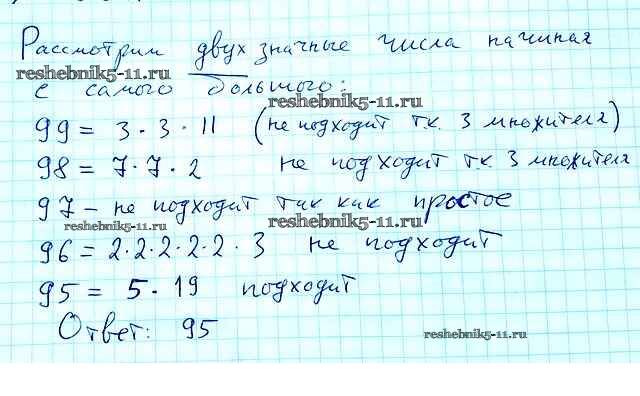 Рассмотрим двух значные числа начиная
reshebnik5-11.ru
с самого большого:
reshebnik5-11.ru
99 = 3 · 3 · 11 (не подходит т.к. 3 множителя)
98 = 7 · 7 · 2 не подходит т.к. 3 множителя
97 – не подходит так как простое
reshebnik5-11.ru reshebnik5-11.ru
96 = 2·2·2·2·2·3 не подходит
95 = 5 · 19 подходит
Ответ: 95
reshebnik5-11.ru